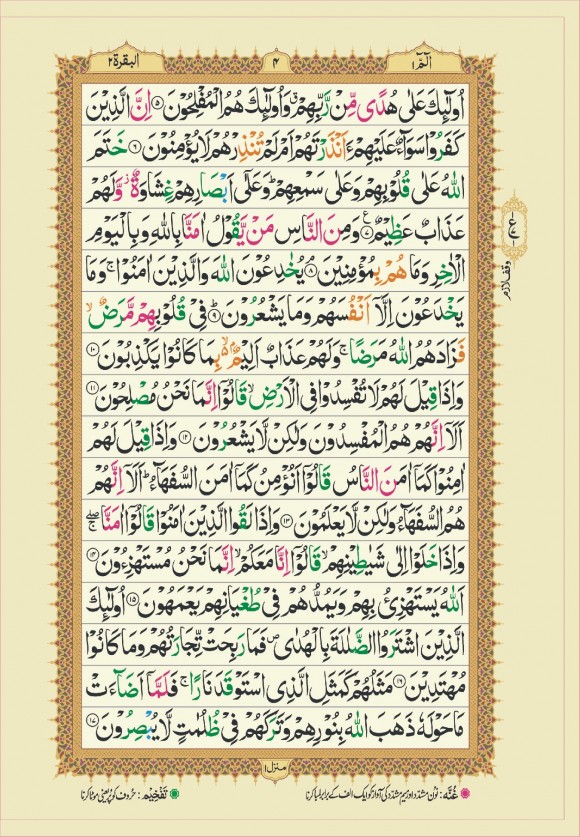 الٓمّٓ ١
٤
البقرة ٢
اُولٰٓئِكَ عَلٰى هُدًى مِّنْ رَّبِّهِمْ ۙ وَاُولٰٓئِكَ هُمُ الْمُفْلِحُوْنَ ۝٥ اِنَّ الَّذِيْنَ
كَفَرُوْا سَوَآءٌ عَلَيْهِمْ ءَاَنْذَرْتَهُمْ اَمْ لَمْ تُنْذِرْهُمْ لَا يُؤْمِنُوْنَ ۝٦ خَتَمَ
اللّٰهُ عَلٰى قُلُوْبِهِمْ وَعَلٰى سَمْعِهِمْ ؕ وَعَلٰٓى اَبْصَارِهِمْ غِشَاوَةٌ ؗ وَّلَهُمْ
عَذَابٌ عَظِيْمٌ ۝٧ وَمِنَ النَّاسِ مَنْ يَّقُوْلُ اٰمَنَّا بِاللّٰهِ وَبِالْيَوْمِ
الْاٰخِرِ وَمَا هُمْ بِمُؤْمِنِيْنَ ۝٨ يُخٰدِعُوْنَ اللّٰهَ وَالَّذِيْنَ اٰمَنُوْا ۚ وَمَا
يَخْدَعُوْنَ اِلَّآ اَنْفُسَهُمْ وَمَا يَشْعُرُوْنَ ۝٩ فِيْ قُلُوْبِهِمْ مَّرَضٌ ۙ
فَزَادَهُمُ اللّٰهُ مَرَضًا ۚ وَلَهُمْ عَذَابٌ اَلِيْمٌۢ ۙ بِمَا كَانُوْا يَكْذِبُوْنَ ۝١٠
وَاِذَا قِيْلَ لَهُمْ لَا تُفْسِدُوْا فِى الْاَرْضِ ۙ قَالُوْٓا اِنَّمَا نَحْنُ مُصْلِحُوْنَ ۝١١
اَلَآ اِنَّهُمْ هُمُ الْمُفْسِدُوْنَ وَلٰكِنْ لَّا يَشْعُرُوْنَ ۝١٢ وَاِذَا قِيْلَ لَهُمْ
اٰمِنُوْا كَمَآ اٰمَنَ النَّاسُ قَالُوْٓا اَنُؤْمِنُ كَمَآ اٰمَنَ السُّفَهَآءُ ؕ اَلَآ اِنَّهُمْ
هُمُ السُّفَهَآءُ وَلٰكِنْ لَّا يَعْلَمُوْنَ ۝١٣ وَاِذَا لَقُوا الَّذِيْنَ اٰمَنُوْا قَالُوْٓا اٰمَنَّا ۖۚ
وَاِذَا خَلَوْا اِلٰى شَيٰطِيْنِهِمْ ۙ قَالُوْٓا اِنَّا مَعَكُمْ ۙ اِنَّمَا نَحْنُ مُسْتَهْزِءُوْنَ ۝١٤
اَللّٰهُ يَسْتَهْزِئُ بِهِمْ وَيَمُدُّهُمْ فِيْ طُغْيَانِهِمْ يَعْمَهُوْنَ ۝١٥ اُولٰٓئِكَ
الَّذِيْنَ اشْتَرَوُا الضَّلٰلَةَ بِالْهُدٰى ۪ فَمَا رَبِحَتْ تِّجَارَتُهُمْ وَمَا كَانُوْا
مُهْتَدِيْنَ ۝١٦ مَثَلُهُمْ كَمَثَلِ الَّذِى اسْتَوْقَدَ نَارًا ۚ فَلَمَّآ اَضَآءَتْ
مَا حَوْلَهٗ ذَهَبَ اللّٰهُ بِنُوْرِهِمْ وَتَرَكَهُمْ فِيْ ظُلُمٰتٍ لَّا يُبْصِرُوْنَ ۝١٧
وقف لازم
منزل ١
غُنَّه: نون مشدد اور میم مشدد کی آواز کو ایک الف کے برابر لمبا کرنا
تَفْخِيْم: حروف کو پُر یعنی موٹا کرنا